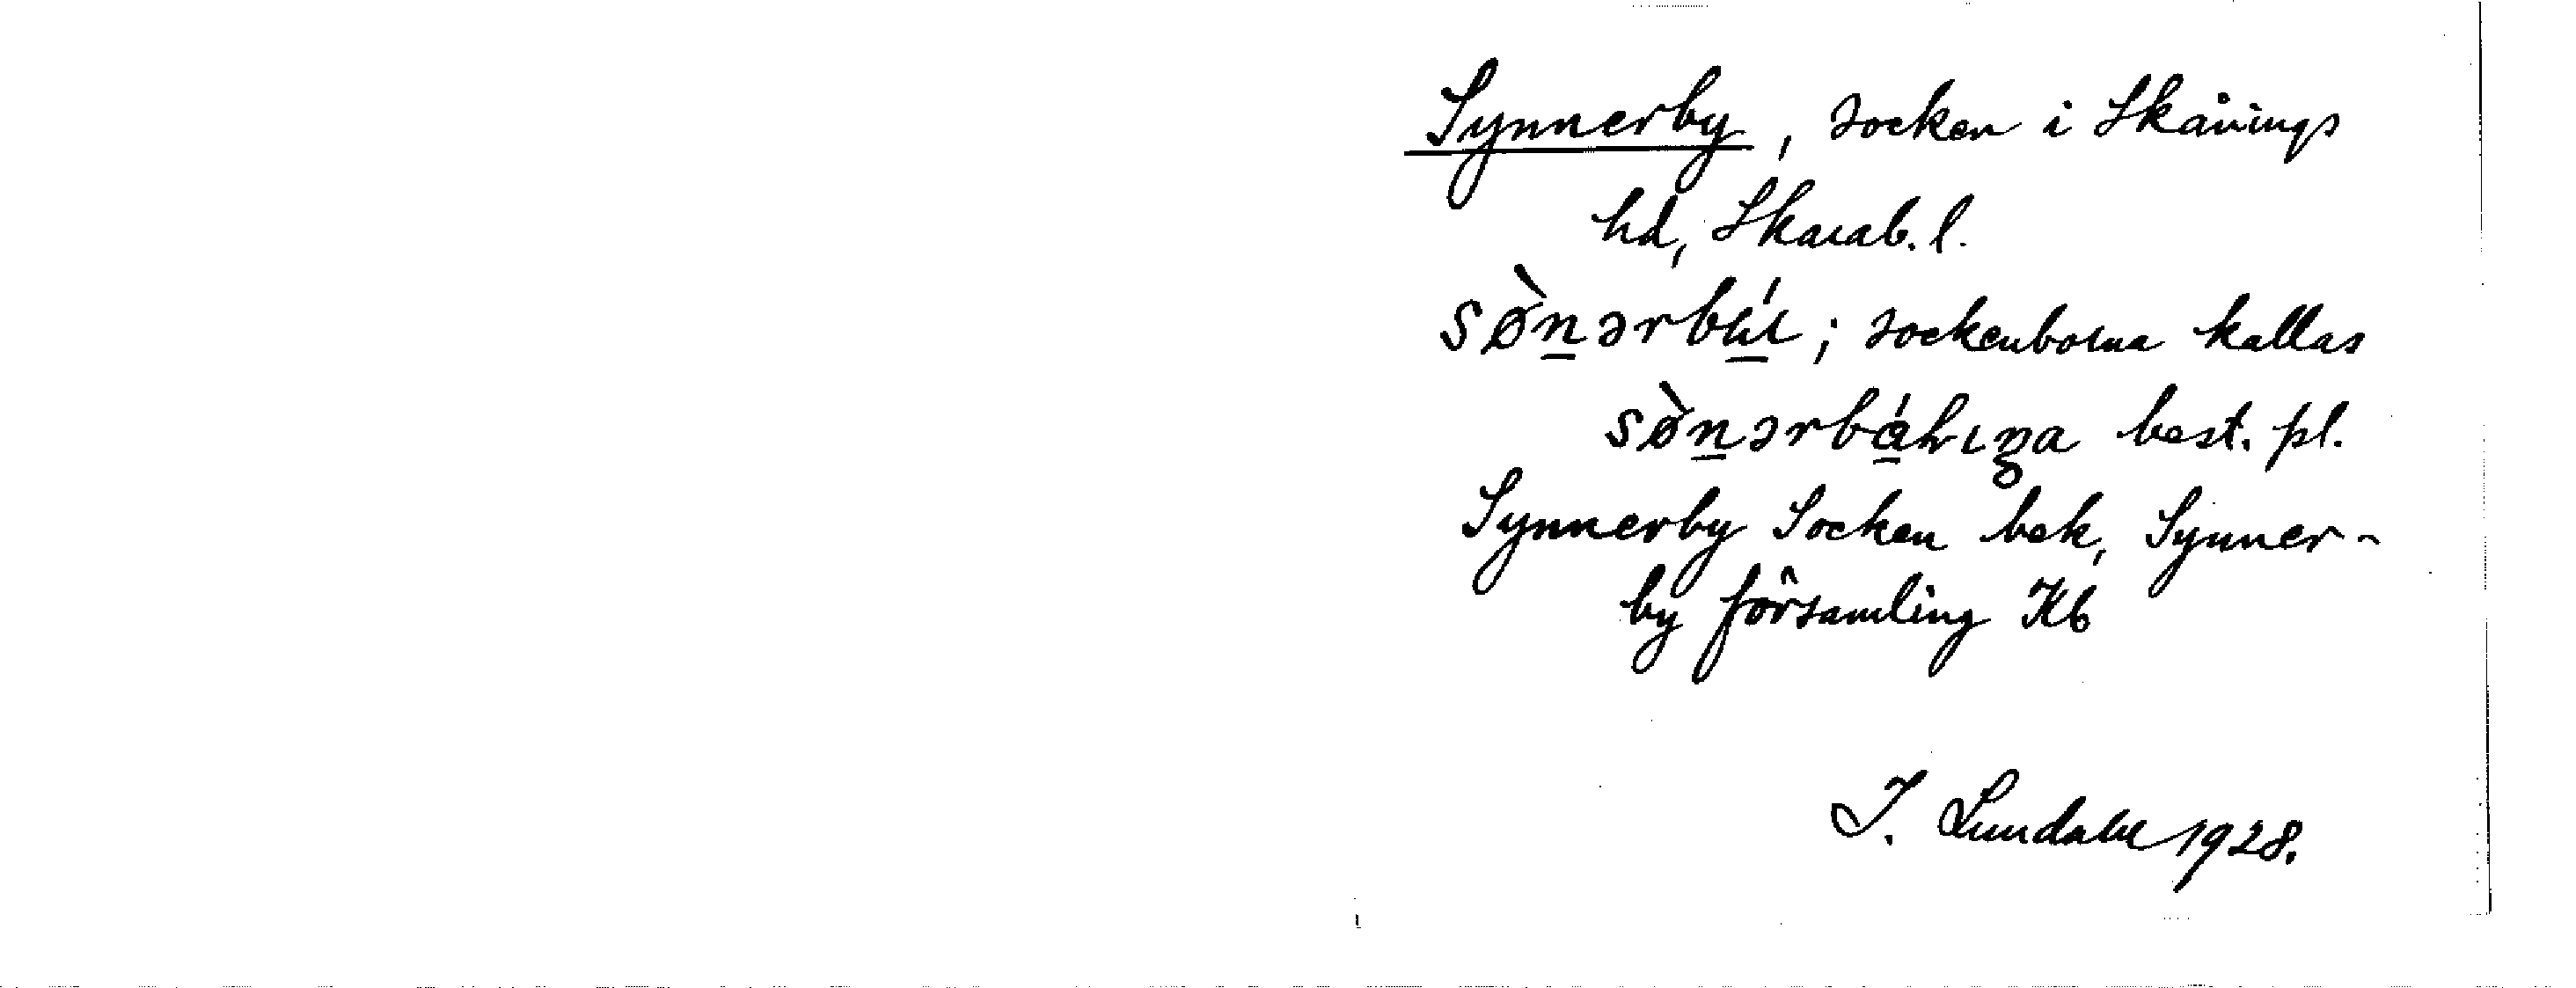 Synnerby, socken i Skånings
hd, Skarab. l.
sø̀nərbý; sockenborna kallas
sø̀nərbáhıŋa best. pl.
Synnerby Socken bek, Synner-
by församling Kb
I. Lundahl 1928.